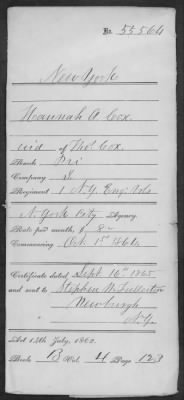 No. 55564
New York
Hannah A Cox
wid of Thos. Cox
Rank Pri
Company I
Regiment 1 N.Y. Eng. Vols
N. York City Agency.
Rate per month, $ 8-
Commencing Oct. 1st 1864
Certificate dated Sept. 16th 1865
and sent to Stephen W. Fullerton
Newburgh
N.Y.
Act 14th July, 1862.
Book B Vol. 4 Page 123